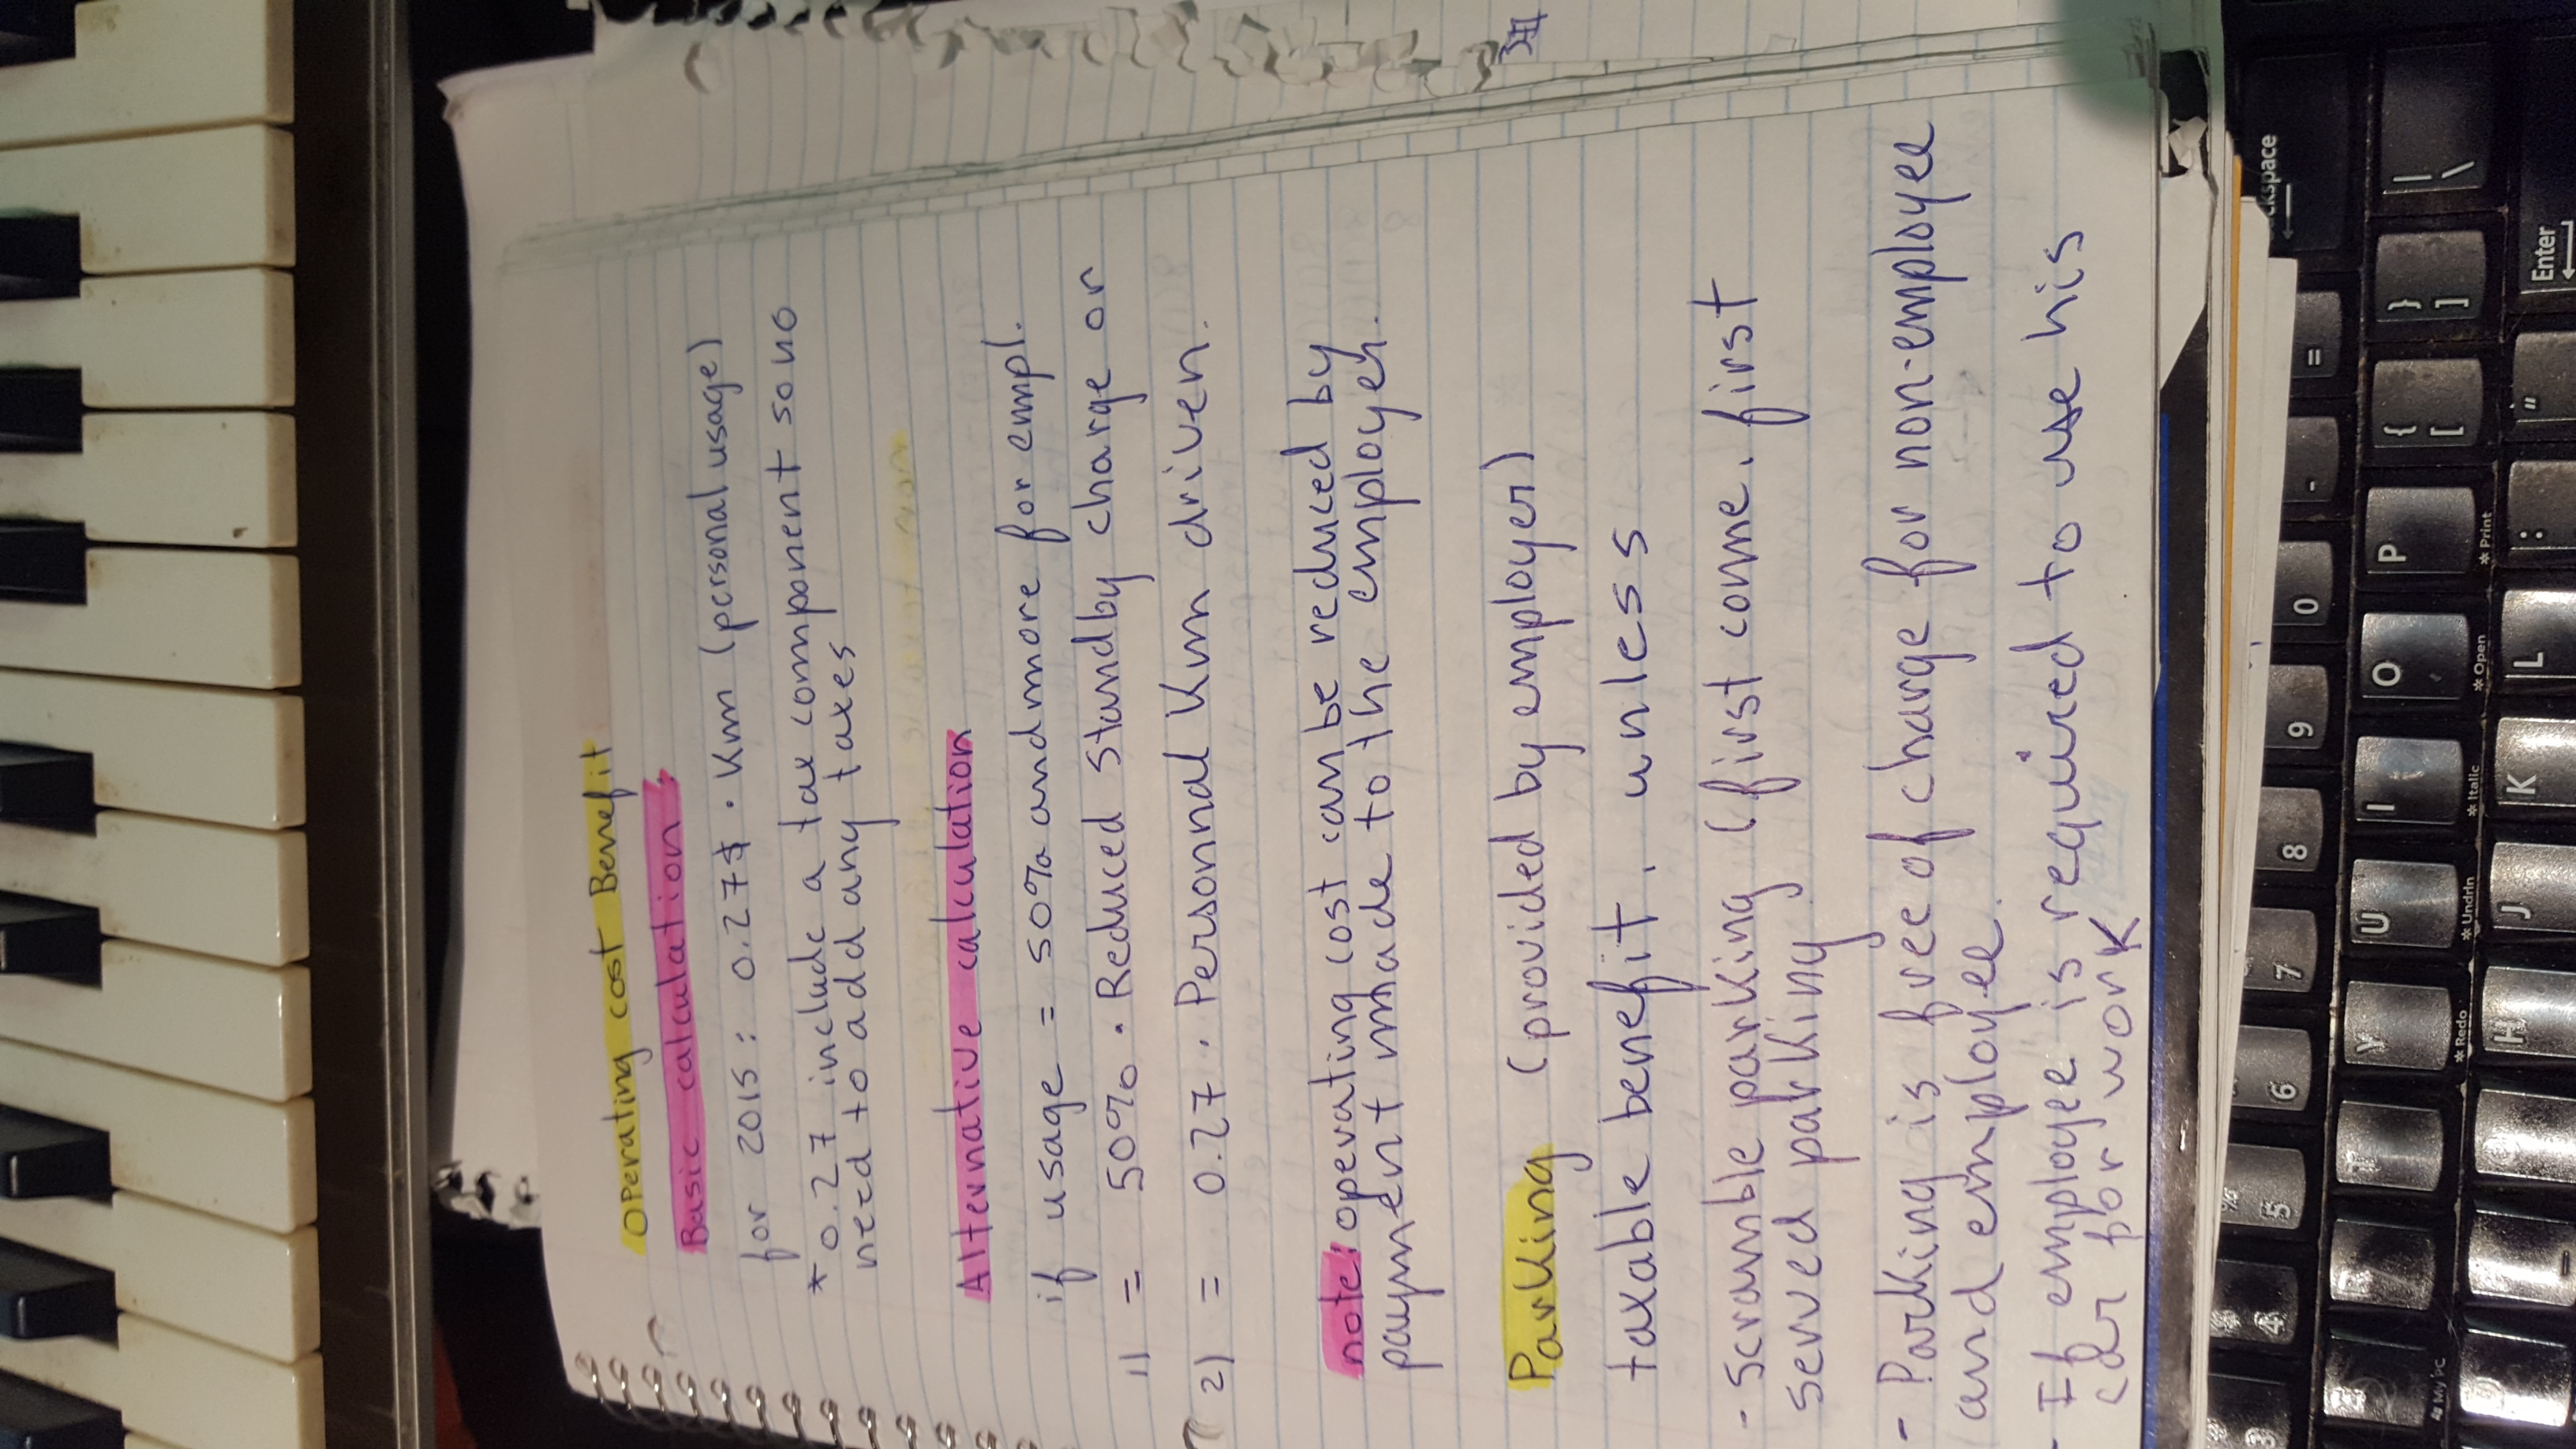 Operating cost Benefit
Basic calculation.
for 2015 : 0.27$ . Km (personal usage)
* 0.27 include a tax component so no
need to add any taxes
Alternative calculation
if usage = 50% and more for empl.
1) = 50% . Reduced standby charge or
2) = 0.27 . Personnal Km driven.
note: operating cost can be reduced by
payment made to the employer.
Parking (provided by employer)
taxable benefit, unless
- Scramble parking (first come, first
served parking
- Parking is free of charge for non-employee
and employee.
- If employee is required to use his
car for work
ckspace
Enter
= - 0 9 8 7 6 5 4 3
} ] { [ P O I U Y
* Print
* Open
* Italic
* Undrln
* Redo
| \
" : L K J H